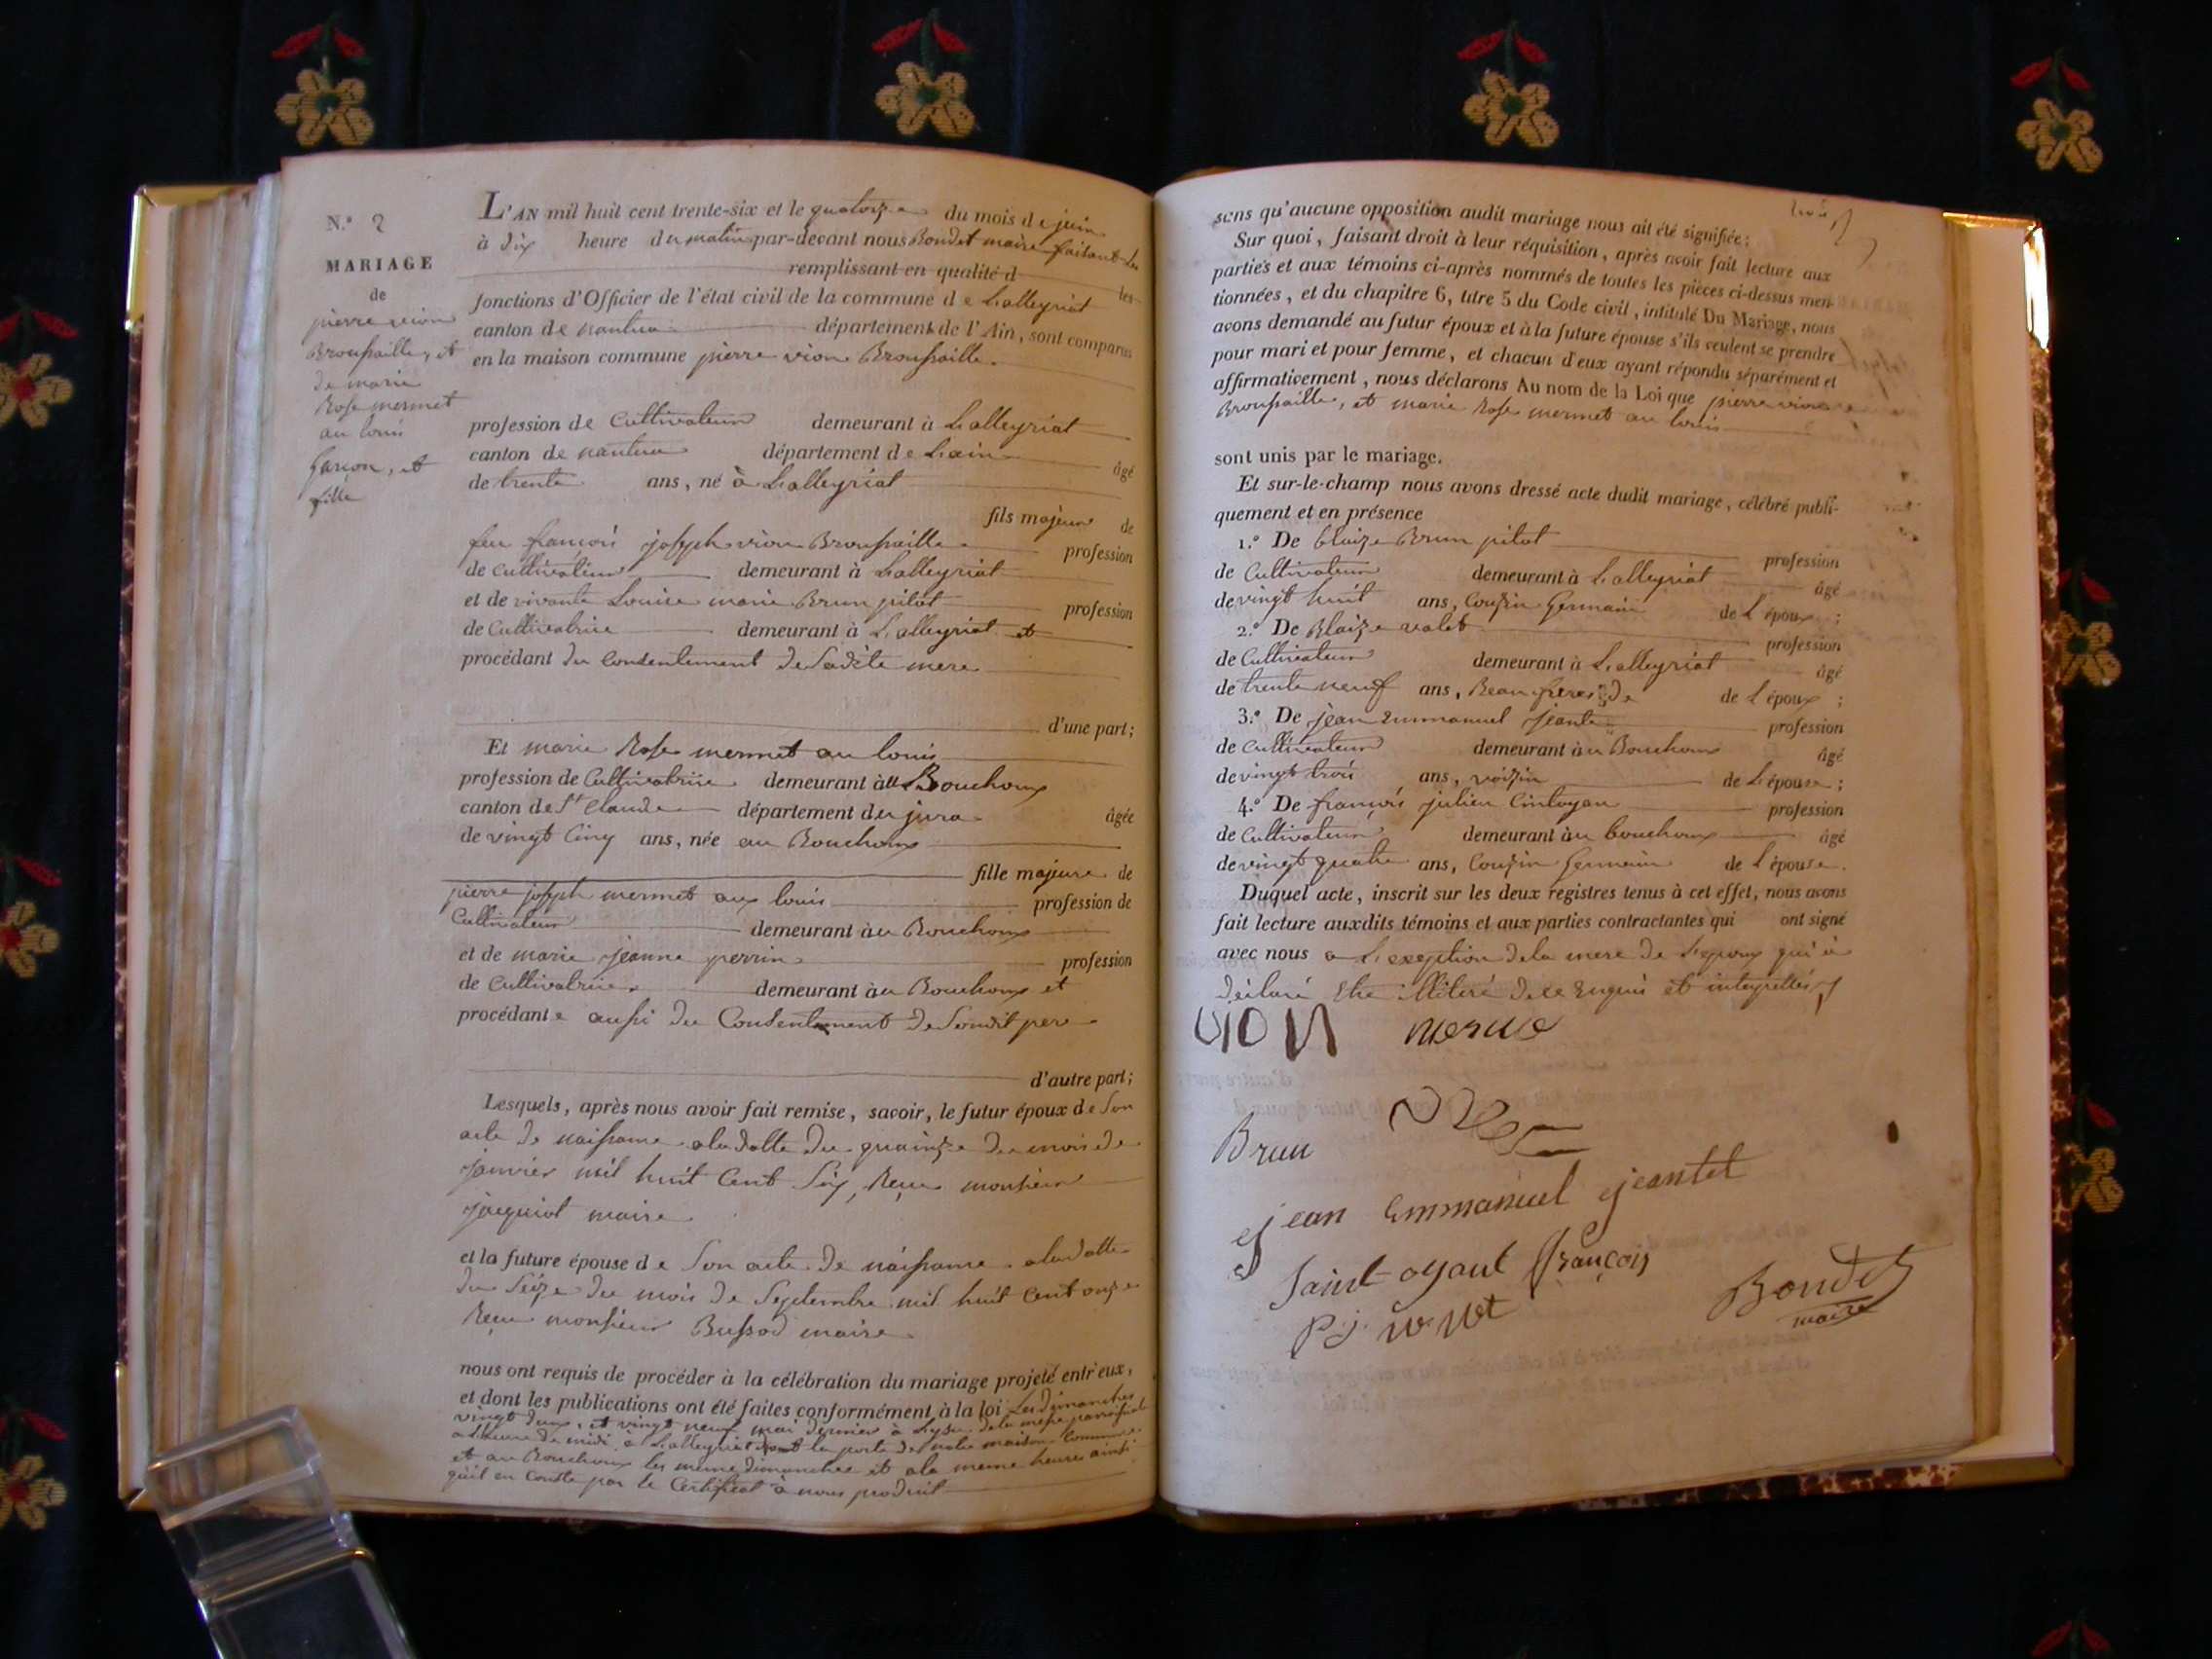 N.° 2
MARIAGE
de
pierre vion
Broussaille, et
de marie
Rose mermet
au louis
garçon, et
fille
L'AN mil huit cent trente-six et le quatorze du mois de juin
à dix heure du matin par-devant nous Bondet maire faisant les
remplissant en qualité d les
fonctions d'Officier de l'état civil de la commune de Lalleyriat
canton de nantua département de l'Ain, sont comparus
en la maison commune pierre vion Broussaille
profession de Cultivateur demeurant à Lalleyriat
canton de nantua département de Lain âgé
de trente ans, né à Lalleyriat
fils majeur de
feu françois joseph vion Broussaille profession
de cultivateur demeurant à Lalleyriat
et de vivante Louise marie Brun pilot profession
de Cultivatrice demeurant à Lalleyriat et
procédant du Consentement de Sadite mere
d'une part;
Et marie Rose mermet au louis
profession de Cultivatrice demeurant au Bouchoux
canton de St Claude département du jura âgée
de vingt Cinq ans, née au Bouchoux
fille majeure de
pierre joseph mermet aux louis profession de
Cultivateur demeurant au Bouchoux
et de marie jeanne perrin profession
de Cultivatrice demeurant au Bouchoux et
procédante aussi du Consentement de Sondit pere
d'autre part;
Lesquels, après nous avoir fait remise, savoir, le futur époux de Son
acte de naissance aladatte du quainze du mois de
janvier mil huit Cent Six, Reçu monsieur
jacquiot maire
et la future épouse de Son acte de naissance aladatte
du Seize du mois de Septembre mil huit Cent onze
Reçu monsieur Bussod maire
nous ont requis de procéder à la célébration du mariage projeté entr'eux,
et dont les publications ont été faites conformément à la loi Les dimanches
vingt deux, et vingt neuf mai dernier à Lysue dela messe paroissiale
a Lheure de midi à Lalleyriat devant la porte de notre maison Commune
et au Bouchoux les meme dimanches et ala meme heure ainsi
quil en Conste par le Certificat à nous produit
sans qu'aucune opposition audit mariage nous ait été signifiée;
Sur quoi, faisant droit à leur réquisition, après avoir fait lecture aux
parties et aux témoins ci-après nommés de toutes les pièces ci-dessus men-
tionnées, et du chapitre 6, titre 5 du Code civil, intitulé Du Mariage, nous
avons demandé au futur époux et à la future épouse s'ils veulent se prendre
pour mari et pour femme, et chacun d'eux ayant répondu séparément et
affirmativement, nous déclarons Au nom de la Loi que pierre vion
Broussaille, et marie Rose mermet au louis
sont unis par le mariage.
Et sur-le-champ nous avons dressé acte dudit mariage, célébré publi-
quement et en présence
1.° De blaize Brun pilot profession
de Cultivateur demeurant à Lalleyriat âgé
de vingt huit ans, Couzin Germain de L'époux;
2.° De Blaize valet profession
de Cultivateur demeurant à Lalleyriat âgé
de trente neuf ans, Beau frere de de L'époux;
3.° De jean Emmanuel jeantet profession
de cultivateur demeurant au Bouchoux âgé
de vingt trois ans, voizin de L'épouse;
4.° De françois julien Cintoyan profession
de Cultivateur demeurant au bouchoux âgé
de vingt quatre ans, Couzin Germain de l'épouse.
Duquel acte, inscrit sur les deux registres tenus à cet effet, nous avons
fait lecture auxdits témoins et aux parties contractantes qui ont signé
avec nous a L'exeption dela mere de L'epoux qui à
déclaré Etre illiteré de ce Enquis et
VION
Brun
jean Emmanuel jeantet
Saint-oyant François
Bondet
maire